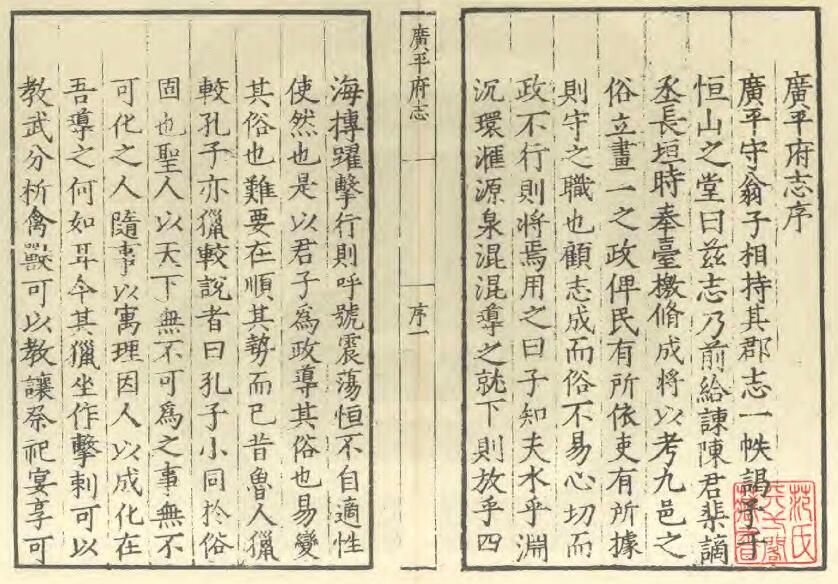 廣平府志序
廣平守翁子相持其郡志一帙謁予于
恒山之堂曰茲志乃前給諫陳君棐謫
丞長垣時奉臺檄脩成將以考九邑之
俗立畫一之政俾民有所依吏有所據
則守之職也顧志成而俗不易心切而
政不行則將焉用之曰子知夫水乎淵
沉環滙源泉混混導之就下則放乎四
廣平府志
序一
海摶躍擊行則呼號震蕩恒不自適性
使然也是以君子為政導其俗也易變
其俗也難要在順其勢而已昔魯人獵
較孔子亦獵較說者曰孔子小同於俗
固也聖人以天下無不可為之事無不
可化之人隨事以寓理因人以成化在
吾導之何如耳今其獵坐作擊刺可以
教武分析禽獸可以教讓祭祀宴享可
范氏
天一閣
藏書